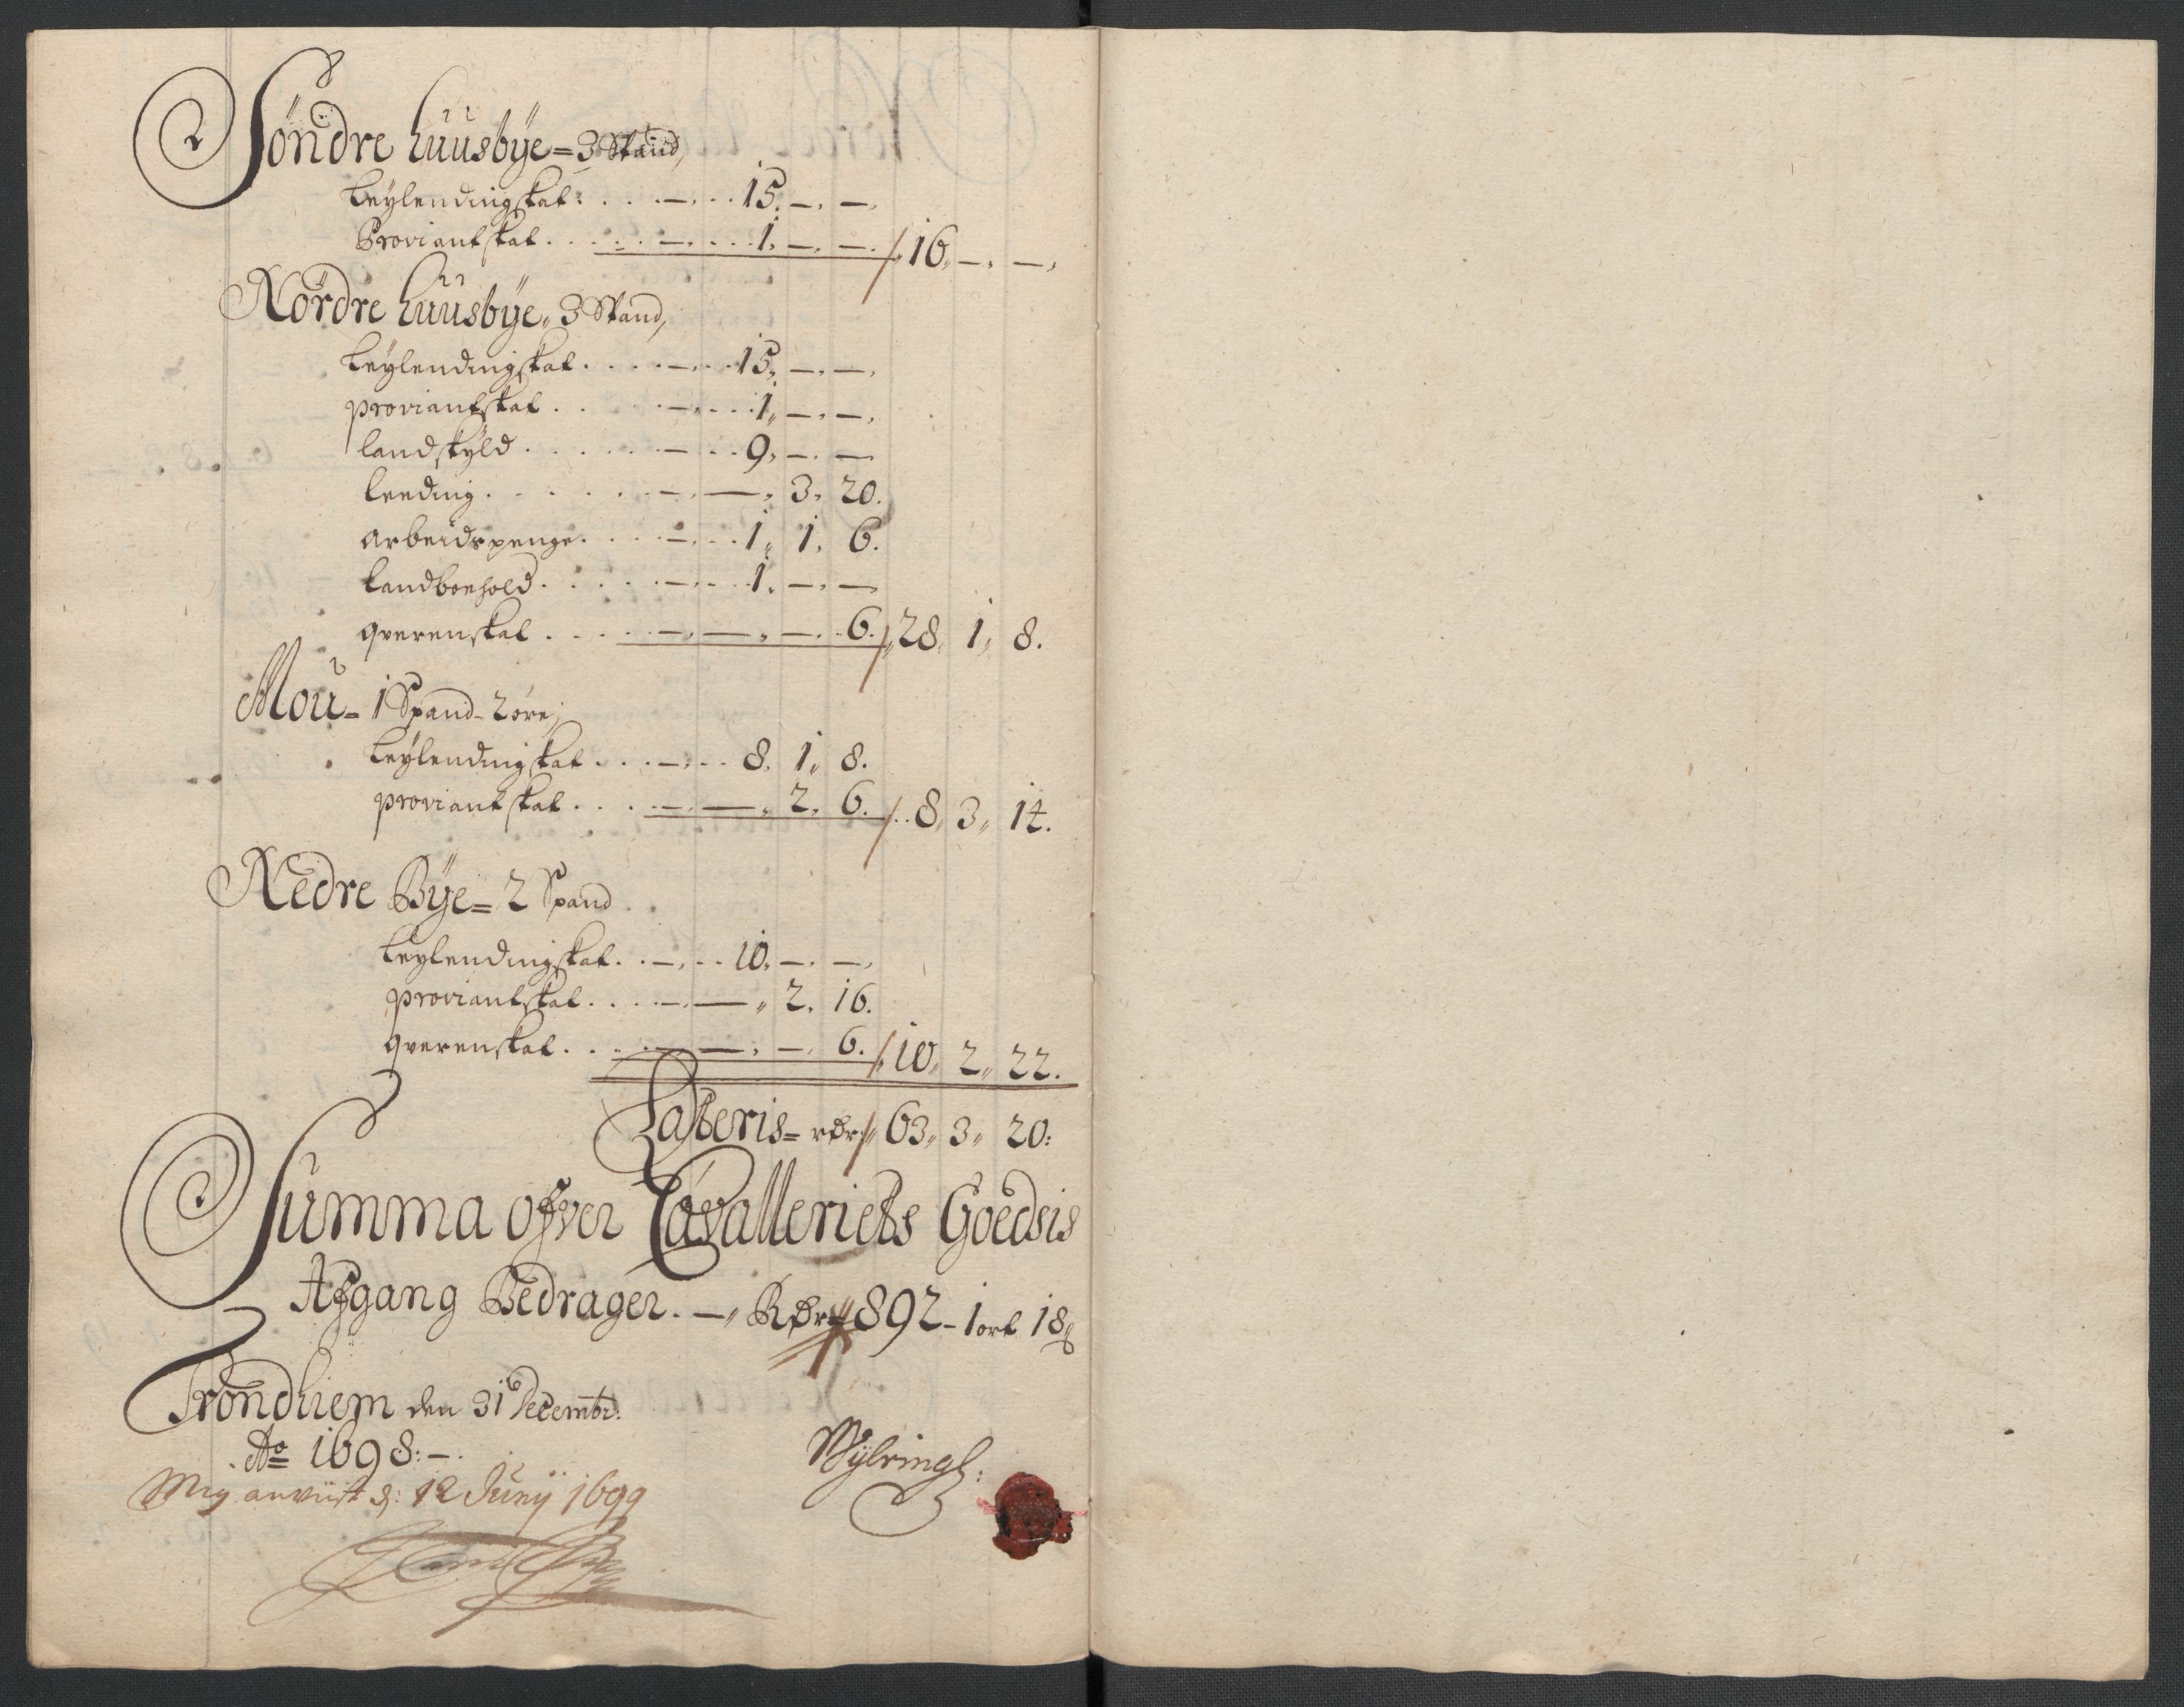 Söndre huusbÿe = 3 Spand,
Leÿlendingskat: . . . — . . 15. —. —.
Proviantskat. . . . . . —. . . . 1. —. —. /. 16. —. —.
Nordre huusbÿe. 3 Spand,
Leÿlendingskat. . . . —. . . 15. —. —.
proviantskat. . . —. . . . 1. —. —.
landskÿld. . . . . . — . . 9. —. —
leeding. . . . . . —. —. 3. 20.
arbeidspenge. . . . —. . . 1. 1. 6.
landboehold. . . . . —. . . 1. —. —
qverenskat. . . . . —. —. —. . 6. /. 28. 1. 8.
Mou = 1 Spand - 2 öre;
Leÿlendingskat. . . —. . . 8. 1. 8.
proviantskat. . . . —. —. 2. 6. /. . 8. 3. 14.
Nedre Bÿe = 2 Spand.
Leÿlendingskat. . —. . . 10. —. —.
proviantskat. . . . —. —. 2. 16.
qverenskat. . . —. —. —. 6. /. 10. 2. 22.
Lateris = rdr /. 63. 3. 20:
Summa ofver Cavalleriets Goedsis
Afgang Bedrager. —. Rdr 892 - 1 ort 18 ß
Trondhiem den 31 Decembr:
Ao 1698: —.
Mig anviist d: 12 Junÿ 1699